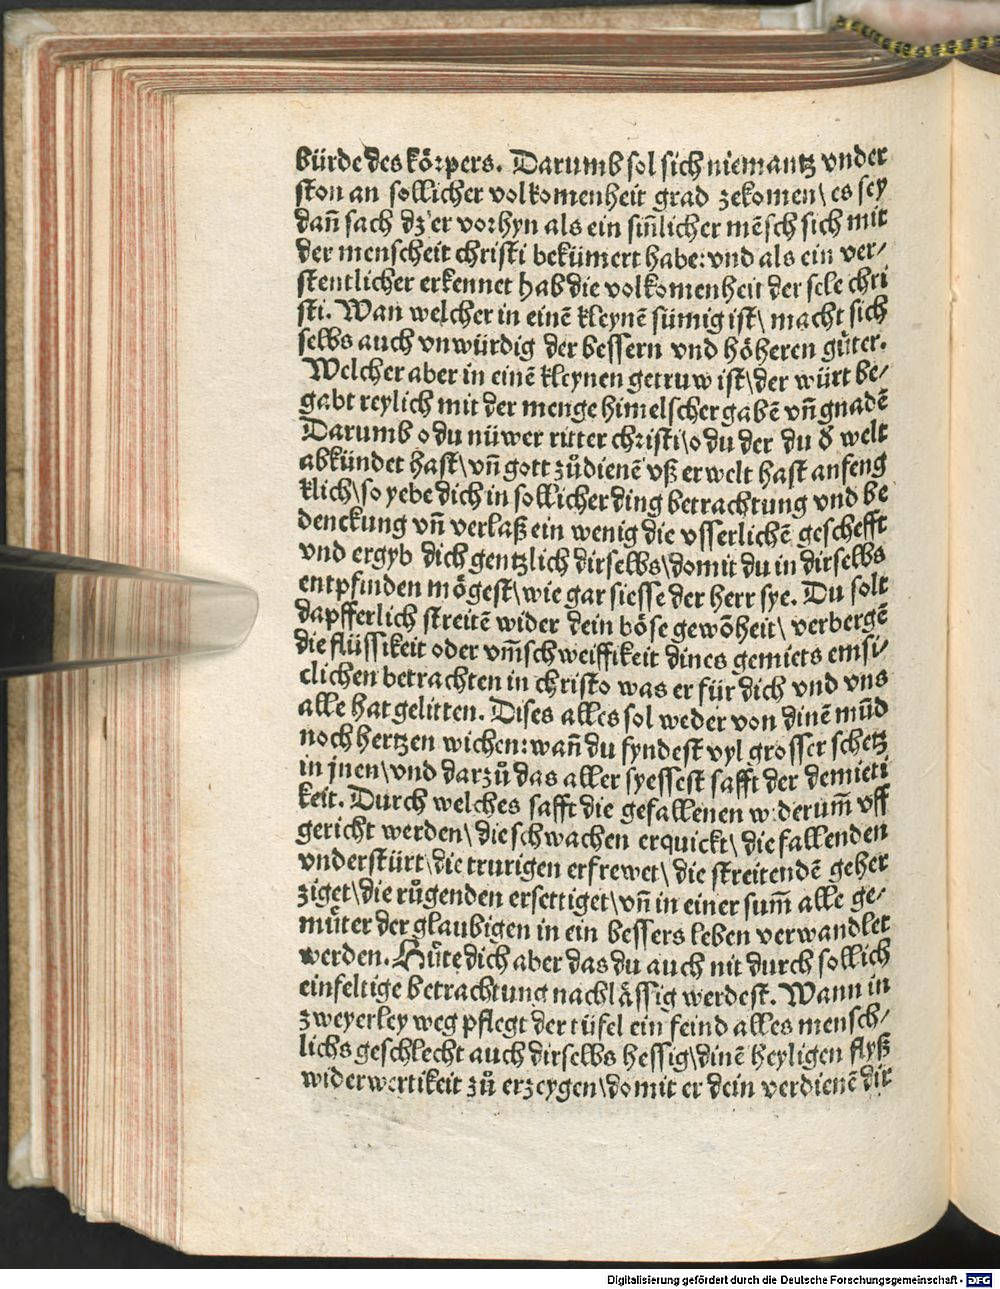 bürde des körpers. Darumb sol sich niemantz vnder
ston an sollicher volkomenheit grad zekomen\ es sey
dañ sach dz er vorhyn als ein siñlicher mẽsch sich mit
der menscheit christi bekümert habe: vnd als ein ver⸗
stentlicher erkennet hab die volkomenheit der sele chri
sti. Wan welcher in einẽ kleynẽ sümig ist\ macht sich
selbs auch vnwürdig der bessern vnd höheren gůter.
Welcher aber in einẽ kleynen getruw ist\ der würt be⸗
gabt reylich mit der menge himelscher gabẽ vñ gnadẽ
Darumb o du nüwer ritter christi\ o du der du d̕ welt
abkündet hast\ vñ gott zů dienẽ vß erwelt hast anfeng
klich\ so yebe dich in sollicher ding betrachtung vnd be
denckung vñ verlaß ein wenig die vsserlichẽ geschefft
vnd ergyb dich gentzlich dir selbs\ domit du in dir selbs
entpfinden mögest\ wie gar siesse der herr sye. Du solt
dapfferlich streitẽ wider dein böse gewõheit\ verbergẽ
die flüssikeit oder vm̃schweiffikeit dines gemiets emsi⸗
clichen betrachten in christo was er für dich vnd vns
alle hat gelitten. Dises alles sol weder von dinẽ mũd
noch hertzen wichen: wañ du fyndest vyl grosser schetz
in jnen\ vnd darzů das aller syessest safft der demieti
keit. Durch welches safft die gefallenen widerum̃ vff
gericht werden\ die schwachen erquickt\ die fallenden
vnderstürt\ die trurigen erfrewet\ die streitendẽ geher
ziget\ die růgenden ersettiget\ vñ in einer sum̃ alle ge⸗
můter der glaubigen in ein bessers leben verwandlet
werden. Hůte dich aber das du auch nit durch sollich
einfeltige betrachtung nachlåssig werdest. Wann in
zweyerley weg pflegt der tüfel ein feind alles mensch⸗
lichs geschlecht auch dir selbs hessig\ dinẽ heyligen flyß
widerwertikeit zů erzeygen\ domit er dein verdienẽ dir
Digitalisierung gefördert durch die Deutsche Forschungsgemeinschaft - DFG